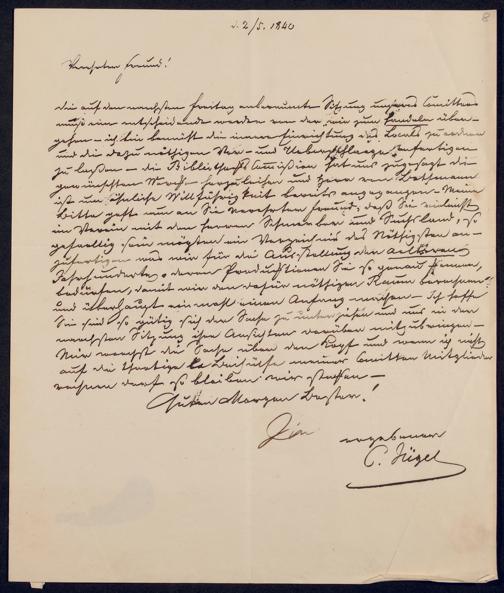 d. 2/5. 1840
8
Verehrter Freund!
Die auf den nächsten Freitag anberaumte Sitzung unseres Comittees
muß eine entscheidende werden von der wir zum Handeln über-
gehen – ich bin bemüht die innere Einrichtung des Locals zu ordnen
und die dazu nöthigen Vor- und Ueberschläge anfertigen
zu laßen – die Bibliotheks Comißion hat uns zugesagt die
gewünschten Werke herzuleihen und Herr von Bethmann
ist um ähnliche Willfährigkeit bereits angegangen – Meine
Bitte geht nun an Sie verehrter Freund, daß Sie vielleicht
in Verein mit den Herren und so
gefällig sein möchten ein Verzeichniß des Nöthigsten an-
zufertigen was wir für die Ausstellung der
Jahrhunderte, deren Productionen Sie so genau kennen,
bedürfen, damit wir den dafür nöthigen Raum berechnen
und überhaupt einmahl einen Anfang machen – Ich hoffe
Sie sind so gütig sich der Sache zu unterziehen und uns in der
nächsten Sitzung ihre Ansichten darüber mitzubringen –
Mir wächst die Sache über den Kopf und wenn ich nicht
auf die thätige Beihülfe meiner Comitten Mitglieder
rechnen darf so bleiben wir stecken –
Guten Morgen Bester!
Ihr ergebener
C. Jügel